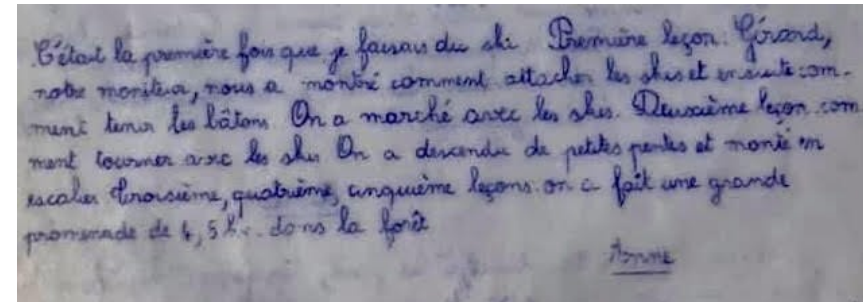 C'était la première fois que je faisais du ski. Première leçon: Gérard,
notre moniteur, nous a montré comment attacher les skis et ensuite com-
ment tenir les bâtons. On a marché avec les skis. Deuxième leçon: com
ment tourner avec les skis. On a descendu de petites pentes et monté en
escalier. Troisième, quatrième, cinquième leçons: on a fait une grande
promenade de 4,5 km dans la forêt
Anne